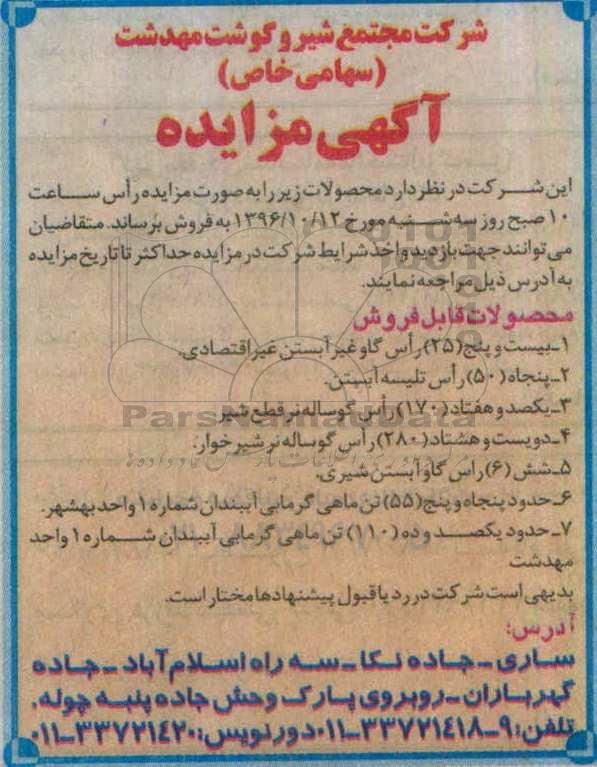 شرکت مجتمع شیر و گوشت مهدشت
(سهامی خاص)
آگهی مزایده
این شرکت در نظر دارد محصولات زیر را به صورت مزایده رأس ساعت
۱۰ صبح روز سه شنبه مورخ ۱۳۹۶/۱۰/۱۲ به فروش برساند. متقاضیان
می توانند جهت بازدید و اخذ شرایط شرکت در مزایده حداکثر تا تاریخ مزایده
به آدرس ذیل مراجعه نمایند.
محصولات قابل فروش
۱ـ بیست و پنج (۲۵) رأس گاو غیر آبستن غیر اقتصادی.
۲ـ پنجاه (۵۰) رأس تلیسه آبستن.
۳ـ یکصد و هفتاد (۱۷۰) رأس گوساله نر قطع شیر
ParsNamadData
۴ـ دویست و هشتاد (۲۸۰) رأس گوساله نر شیر خوار.
۵ـ شش (۶) راس گاو آبستن شیری.
۶ـ حدود پنجاه و پنج (۵۵) تن ماهی گرمابی آببندان شماره ۱ واحد بهشهر.
۷ـ حدود یکصد و ده (۱۱۰) تن ماهی گرمابی آببندان شماره ۱ واحد
مهدشت
بدیهی است شرکت در رد یا قبول پیشنهادها مختار است.
آدرس:
ساری ـ جاده نکا ـ سه راه اسلام آباد ـ جاده
گهرباران ـ روبروی پارک وحش جاده پنبه چوله.
تلفن: ۹ـ۳۳۷۲۱۴۱۸ـ۰۱۱ دورنویس: ۳۳۷۲۱۴۲۰ـ۰۱۱